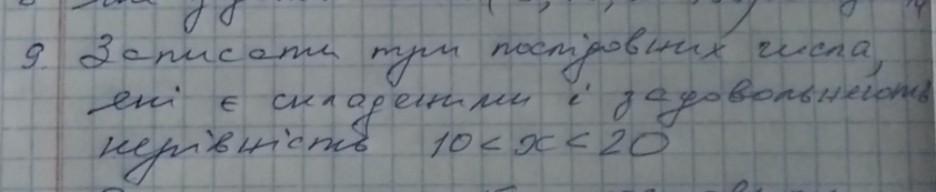 9. Записати три послідовних числа,
які є складеними і задовольняють
нерівність 10 < x < 20